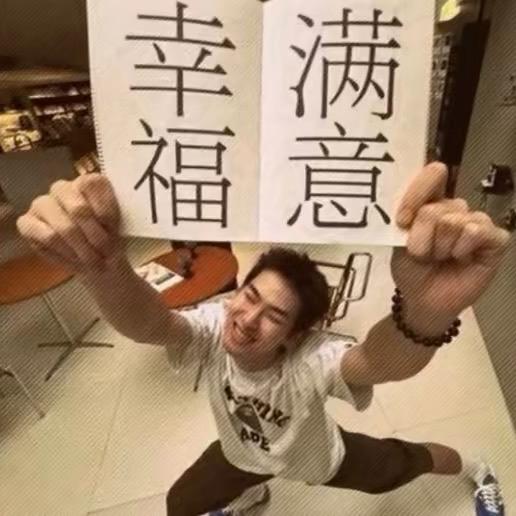 幸 满
福 意
APE